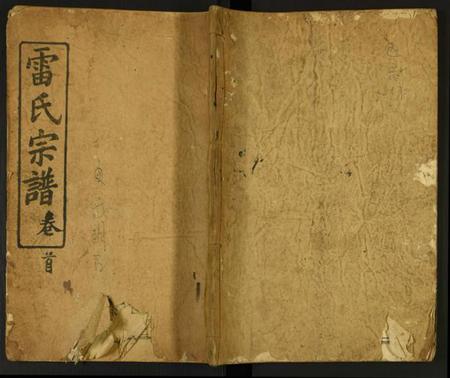 雷氏宗譜
卷
首